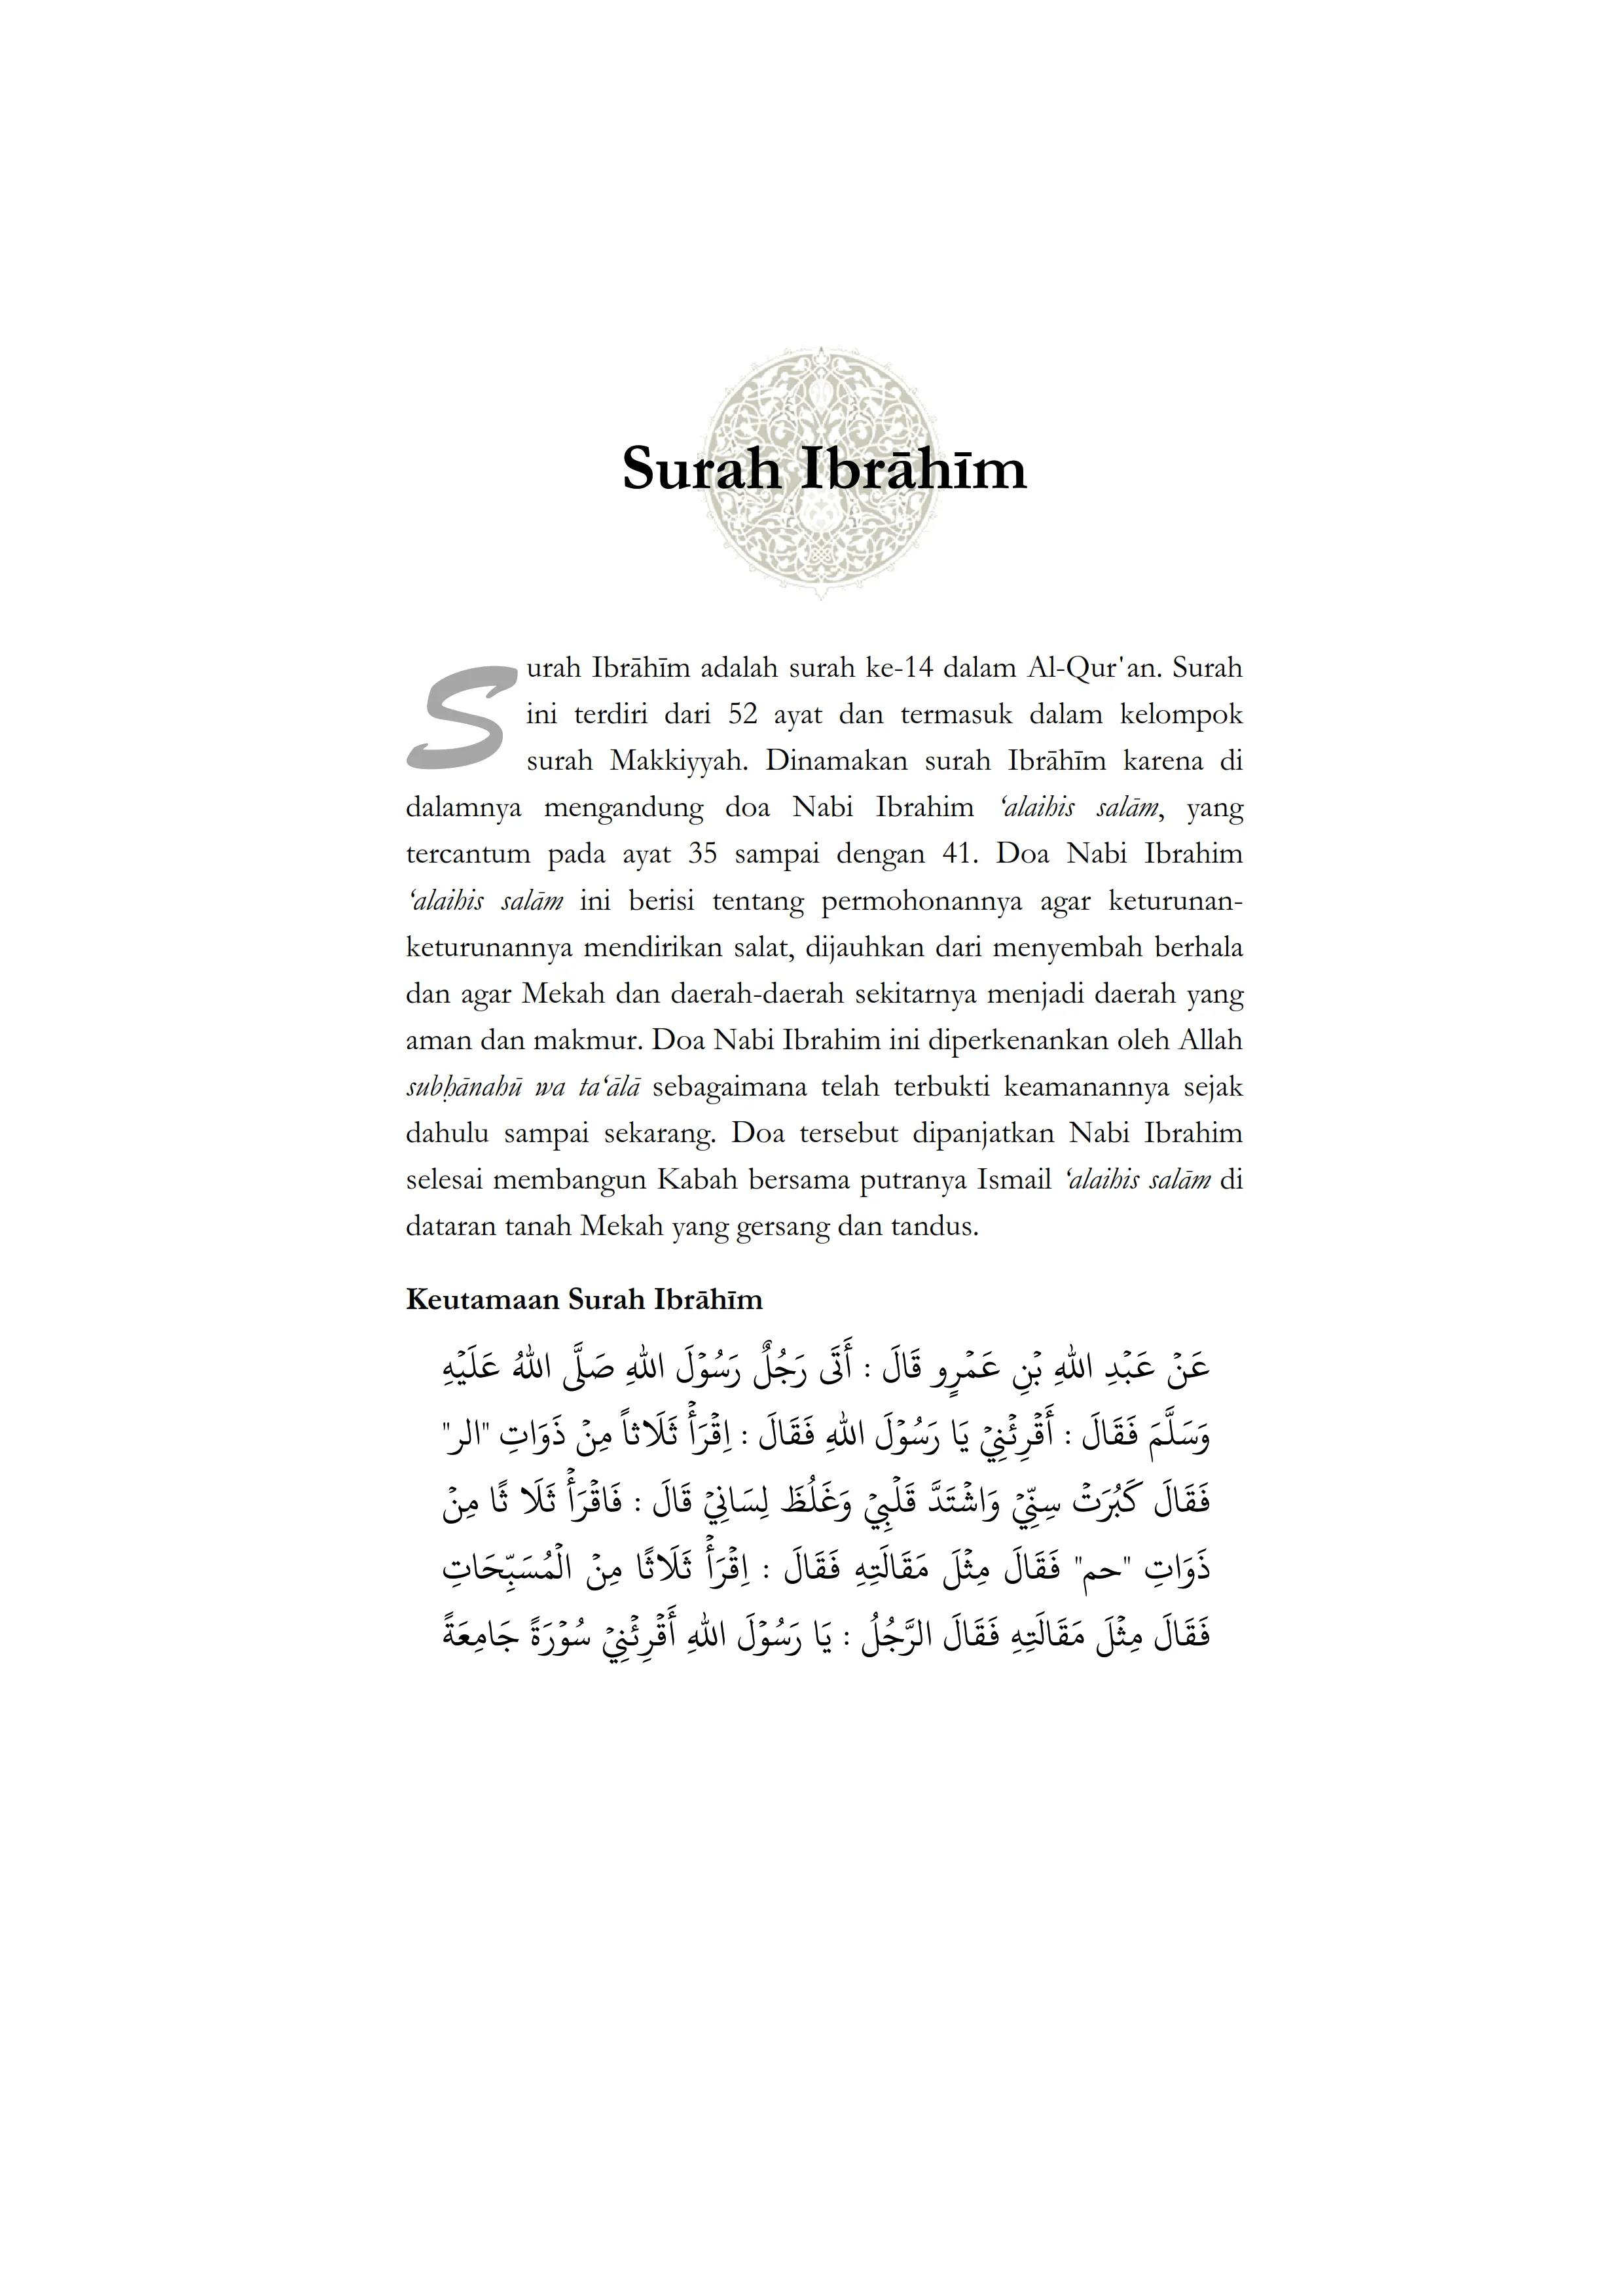 Surah Ibrāhīm
Surah Ibrāhīm adalah surah ke-14 dalam Al-Qur'an. Surah
ini terdiri dari 52 ayat dan termasuk dalam kelompok
surah Makkiyyah. Dinamakan surah Ibrāhīm karena di
dalamnya mengandung doa Nabi Ibrahim ‘alaihis salām, yang
tercantum pada ayat 35 sampai dengan 41. Doa Nabi Ibrahim
‘alaihis salām ini berisi tentang permohonannya agar keturunan-
keturunannya mendirikan salat, dijauhkan dari menyembah berhala
dan agar Mekah dan daerah-daerah sekitarnya menjadi daerah yang
aman dan makmur. Doa Nabi Ibrahim ini diperkenankan oleh Allah
subḥānahū wa ta‘ālā sebagaimana telah terbukti keamanannya sejak
dahulu sampai sekarang. Doa tersebut dipanjatkan Nabi Ibrahim
selesai membangun Kabah bersama putranya Ismail ‘alaihis salām di
dataran tanah Mekah yang gersang dan tandus.
Keutamaan Surah Ibrāhīm
عَنْ عَبْدِ اللهِ بْنِ عَمْرٍو قَالَ : أَتَى رَجُلٌ رَسُوْلَ اللهِ صَلَّى اللهُ عَلَيْهِ
وَسَلَّمَ فَقَالَ : أَقْرِئْنِيْ يَا رَسُوْلَ اللهِ فَقَالَ : اِقْرَأْ ثَلَاثاً مِنْ ذَوَاتِ "الر"
فَقَالَ كَبُرَتْ سِنِّيْ وَاشْتَدَّ قَلْبِيْ وَغَلُظَ لِسَانِيْ قَالَ : فَاقْرَأْ ثَلَا ثًا مِنْ
ذَوَاتِ "حم" فَقَالَ مِثْلَ مَقَالَتِهِ فَقَالَ : اِقْرَأْ ثَلَاثًا مِنْ الْمُسَبِّحَاتِ
فَقَالَ مِثْلَ مَقَالَتِهِ فَقَالَ الرَّجُلُ : يَا رَسُوْلَ اللهِ أَقْرِئْنِيْ سُوْرَةً جَامِعَةً